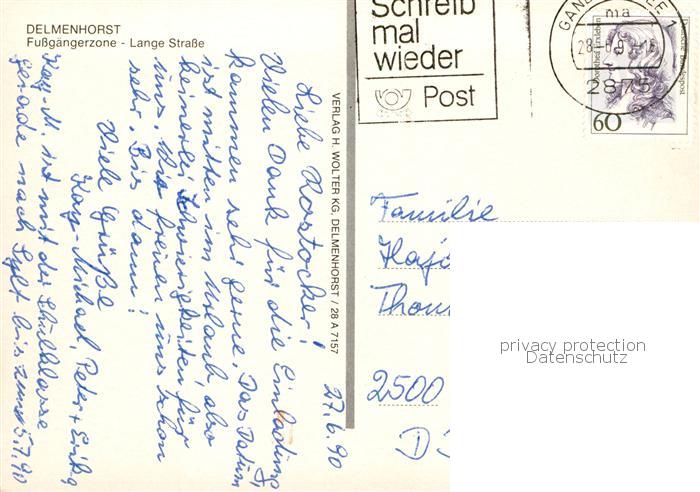 DELMENHORST
Fußgängerzone - Lange Straße
27.6.90
Liebe Rostocker!
Vielen Dank für die Einladung,
kommen sehr gerne. Das Datum
ist mitten im Urlaub, also
keinerlei Schwierigkeiten für
uns. Wir freuen uns schon
sehr. Bis dann!
Viele Grüße
Kay-Michael, Peter +
Kay-M. ist mit der Schulklasse
gerade nach Sylt bis zum 5.7.90
VERLAG H. WOLTER KG, DELMENHORST / 28 A 7157
Schreib
mal
wieder
Post
2875
Dorothea Erxleben
Deutsche Bundespost
60
Familie
Hajo
Thom
2500
D
privacy protection
Datenschutz